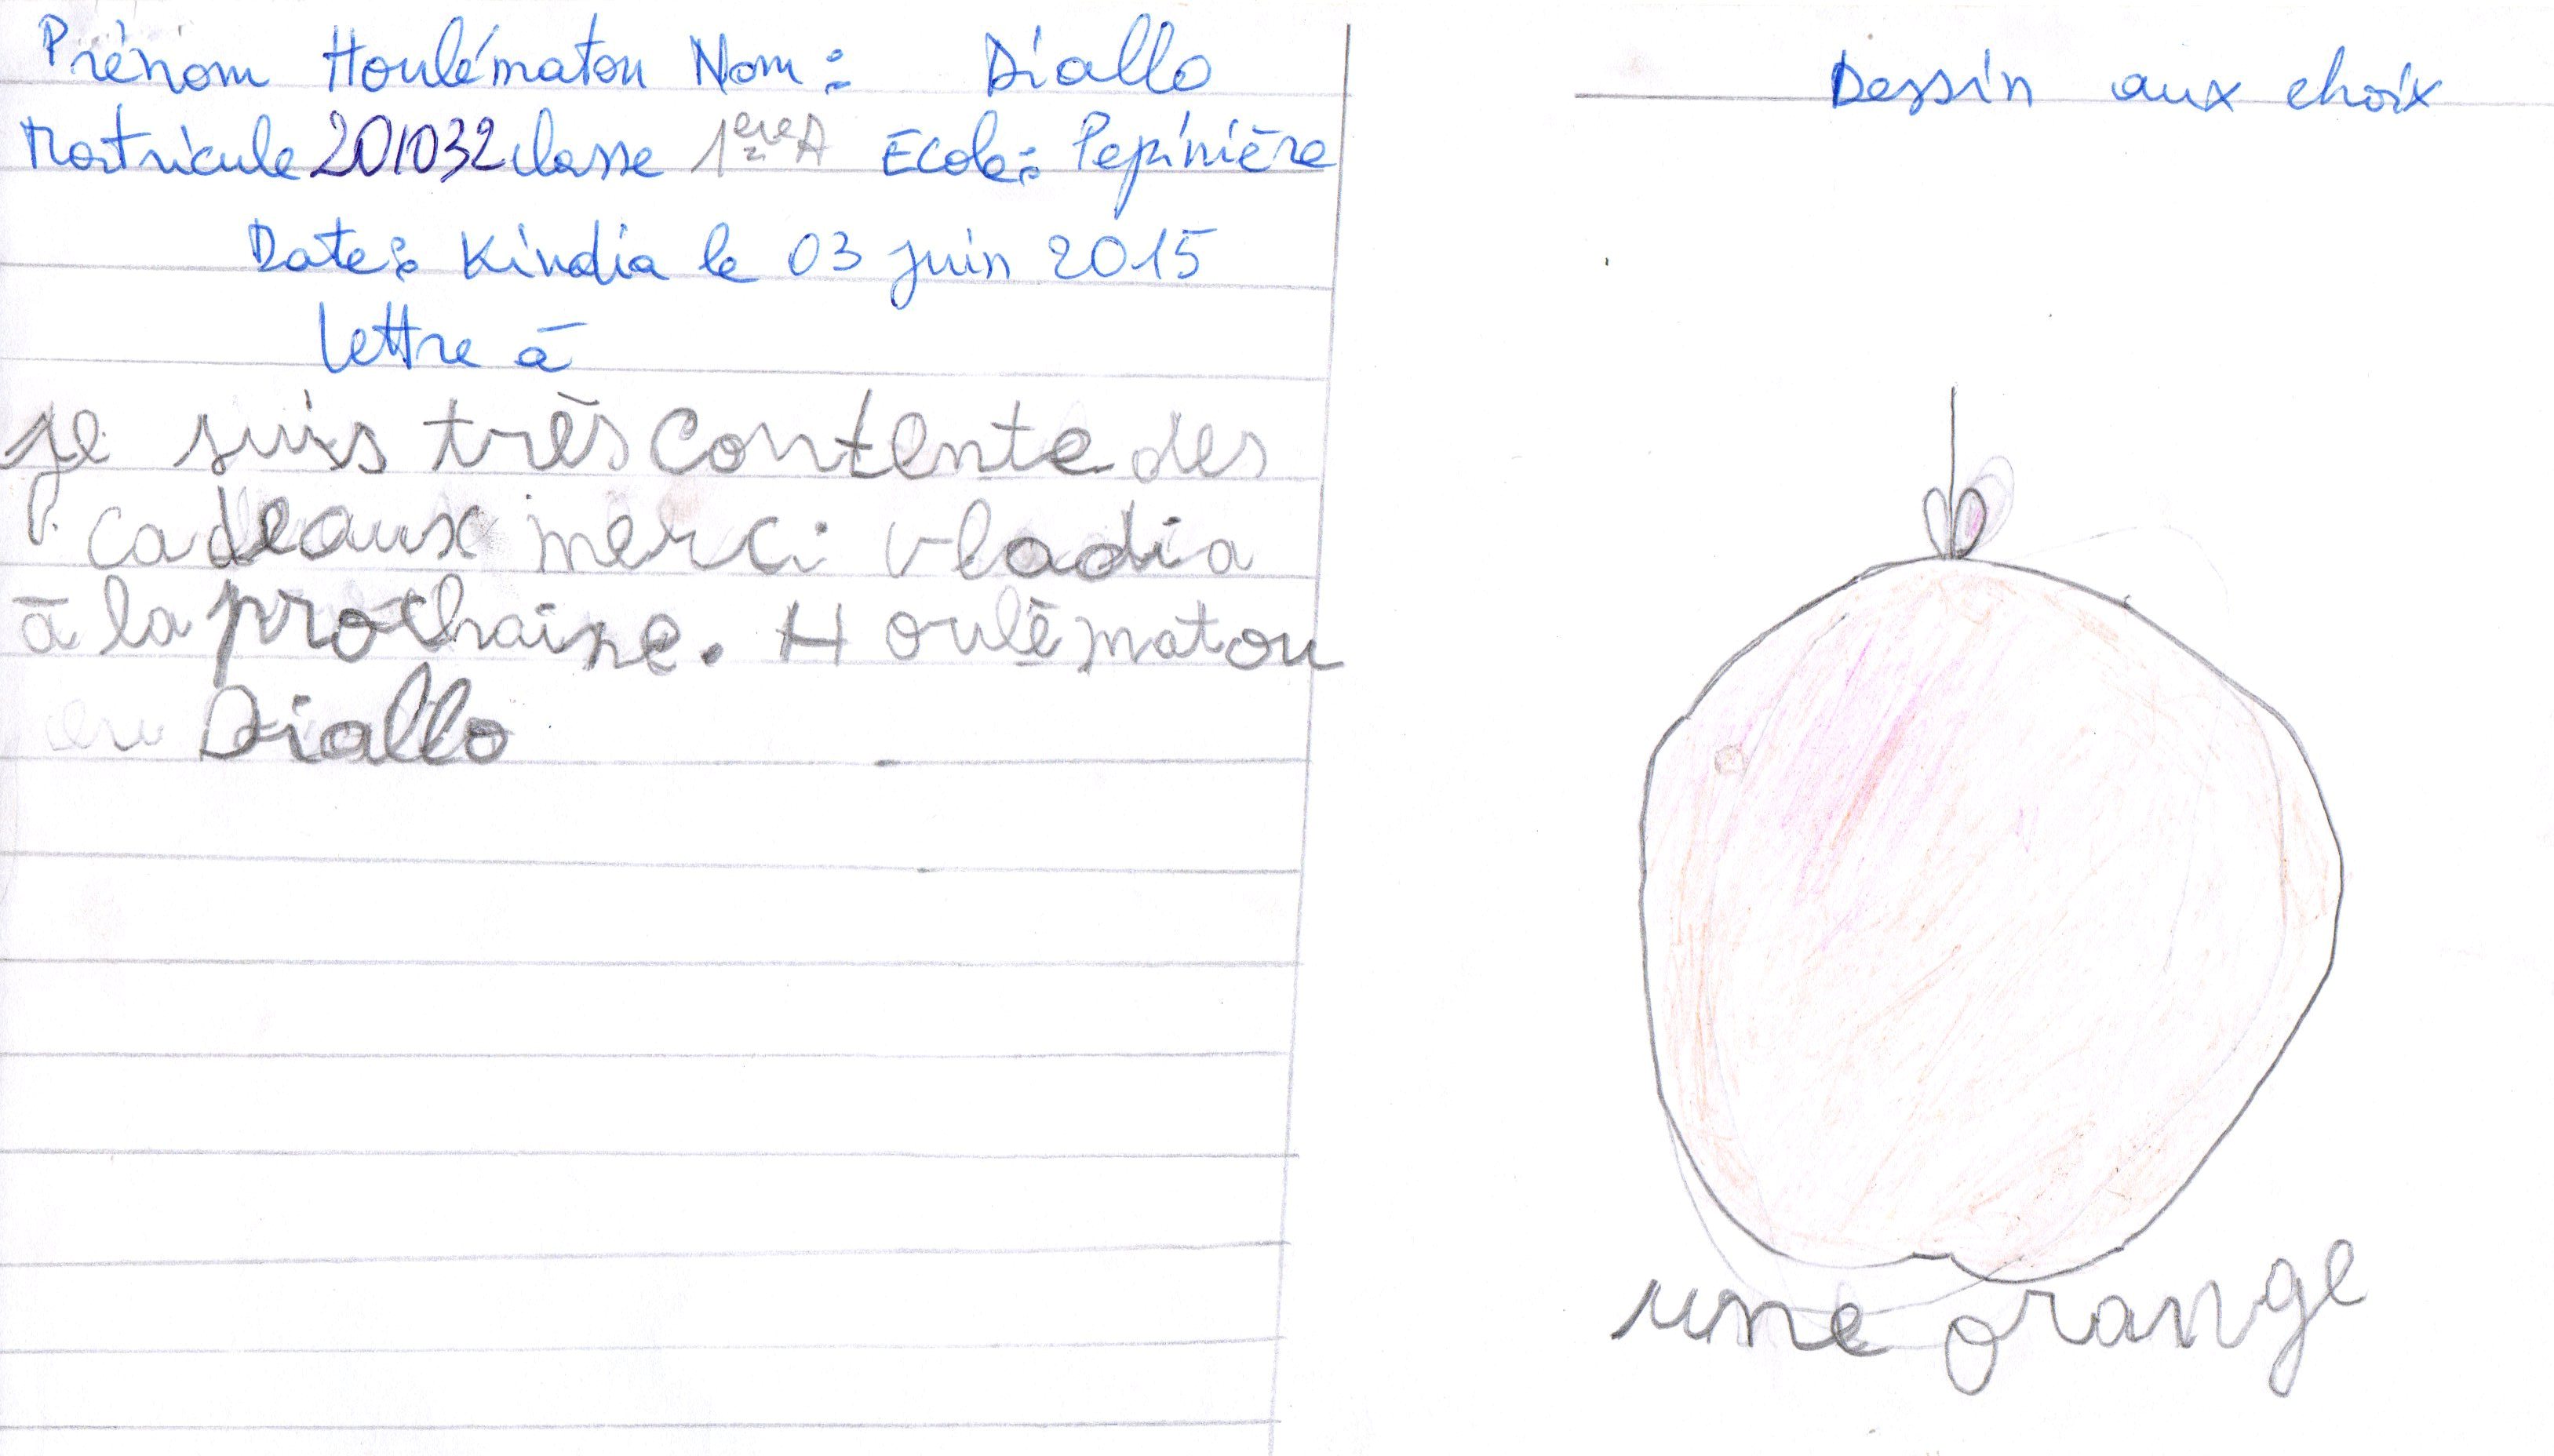 Prénom Houlématou Nom: Diallo
Matricule 201032 classe 1ère A Ecole: Pepinière
Date: Kindia le 03 juin 2015
lettre à
je suis très contente des
cadeaux merci vladia
à la prochaine. Houlématou
Diallo
Dessin aux choix
une orange